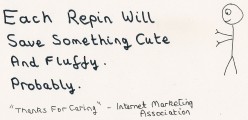 Each Repin Will
Save Something Cute
And Fluffy.
Probably.
"Thanks For Caring" - Internet Marketing
Association